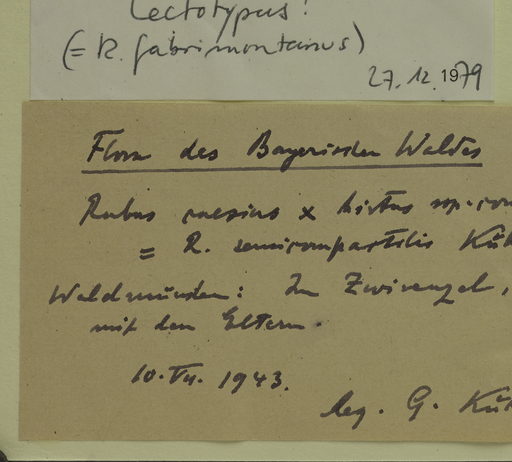 Lectotypus!
(= R. fabrimontanus)
27.12.1979
Flora des Bayerischen Waldes
Rubus caesius x hirtus ssp.
= R. semicompactilis
Waldmünchen: Im Zwirenzel,
mit den Eltern.
10.VII. 1943.
leg. G.